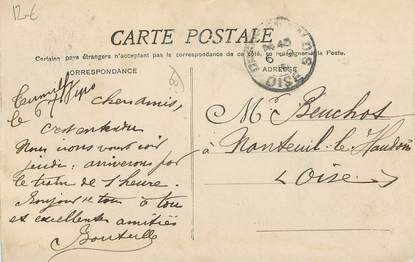 12€
CARTE POSTALE
Certains pays étrangers n'acceptent pas la correspondance de ce côté, se renseigner à la Poste.
CORRESPONDANCE
ADRESSE
OISE
le 6
Chers amis,
c'est entendu
Nous irons vous voir
jeudi; arriverons par
le train de 1 heure.
Bonjour à tous à tous
et excellentes amitiés
Bouteille
Mr Beuchot
à Nanteuil-le-Haudoin
Oise